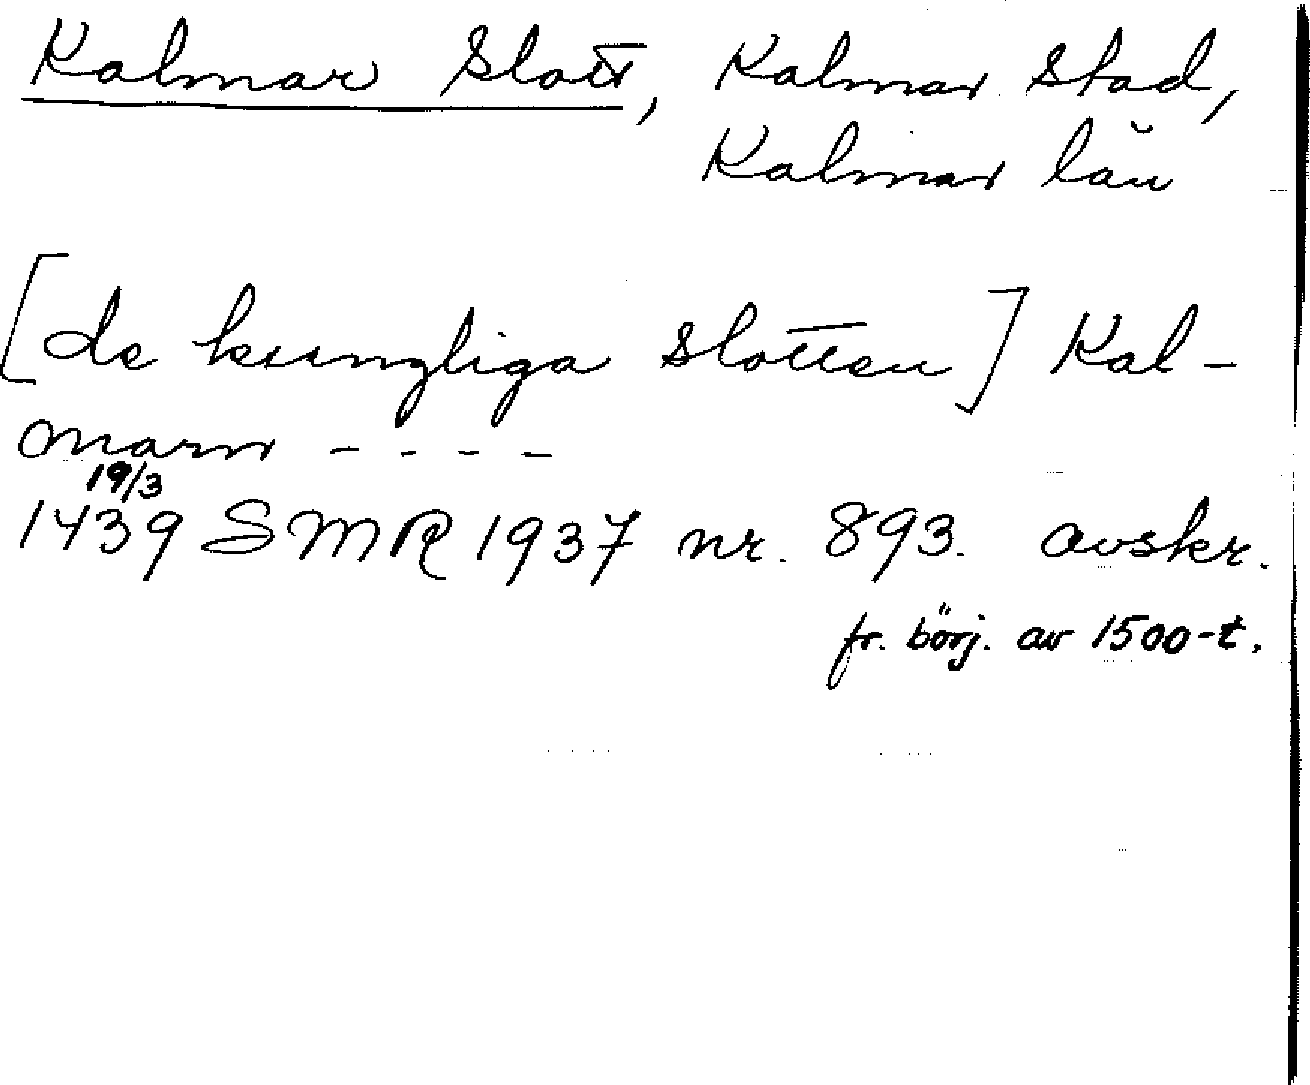 Kalmar Slott, Kalmar Stad,
Kalmar län
[de kungliga slotten] Kal-
marn - - - -
19/3
1439 SMR 1937 nr. 893. avskr.
fr. börj. av 1500-t.